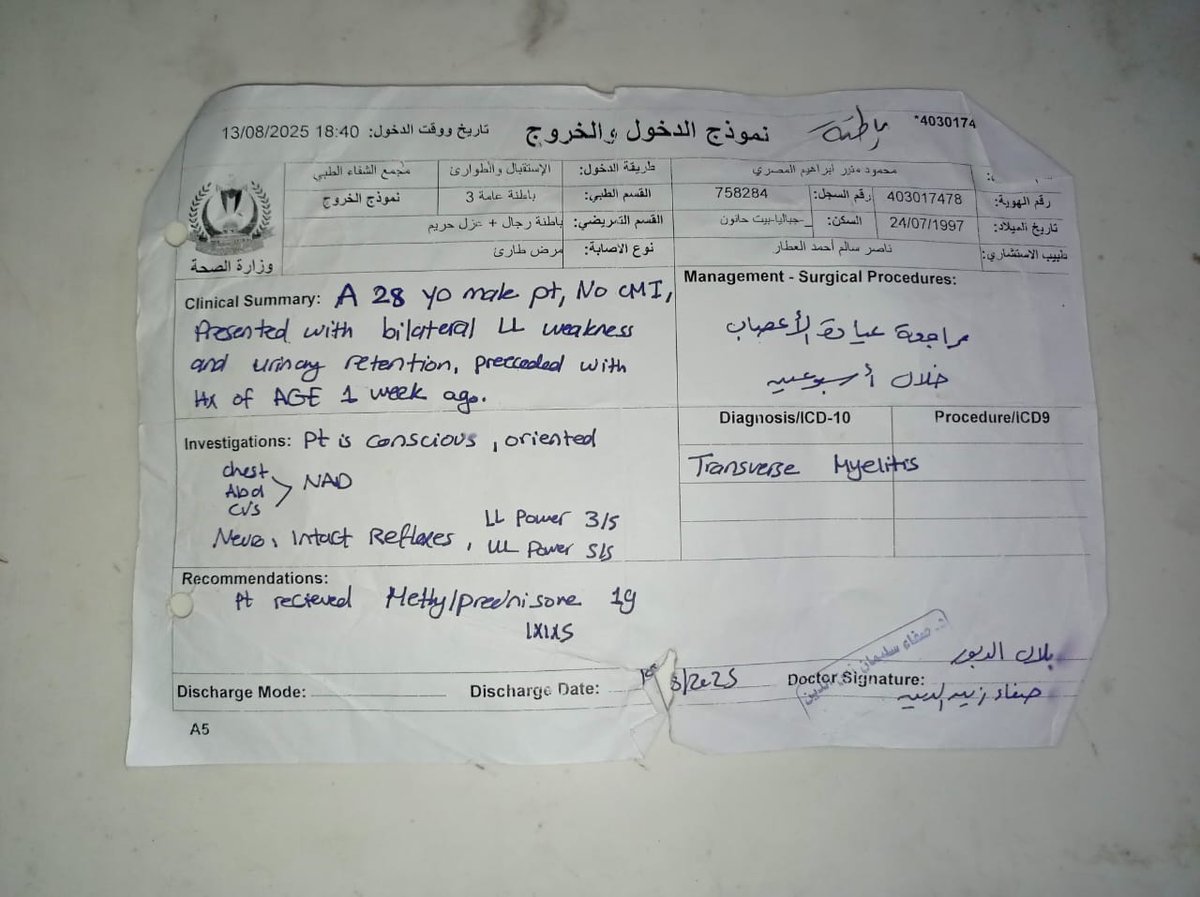 *4030174
باطنة
نموذج الدخول والخروج
تاريخ ووقت الدخول: 13/08/2025 18:40
محمود منير ابراهيم المصري طريقة الدخول: الإستقبال والطوارئ مجمع الشفاء الطبي
رقم الهوية: 403017478 رقم السجل: 758284 القسم الطبي: باطنة عامة 3 نموذج الخروج
تاريخ الميلاد: 24/07/1997 السكن: جباليا-بيت حانون القسم التمريضي: باطنة رجال + عزل حريم
طبيب الاستشاري: ناصر سالم أحمد العطار نوع الاصابة: مرض طارئ
وزارة الصحة
Clinical Summary: A 28 yo male pt, No CMI,
Presented with bilateral LL weakness
and urinary retention, preceeded with
Hx of AGE 1 week ago.
Management - Surgical Procedures:
مراجعة عيادة الأعصاب
خلال أسبوعين
Diagnosis/ICD-10 Procedure/ICD9
Transverse Myelitis
Investigations: Pt is conscious, oriented
chest
Abd
CVS
NAD
Neuro, Intact Reflexes, LL Power 3/5
UL Power 5/5
Recommendations:
Pt recieved Methylprednisone 1g
1x1x5
Discharge Mode:
Discharge Date: 8/2025
Doctor Signature:
بلال الدبور
صفاء زين الدين
د. صفاء سليمان زين الدين
A5